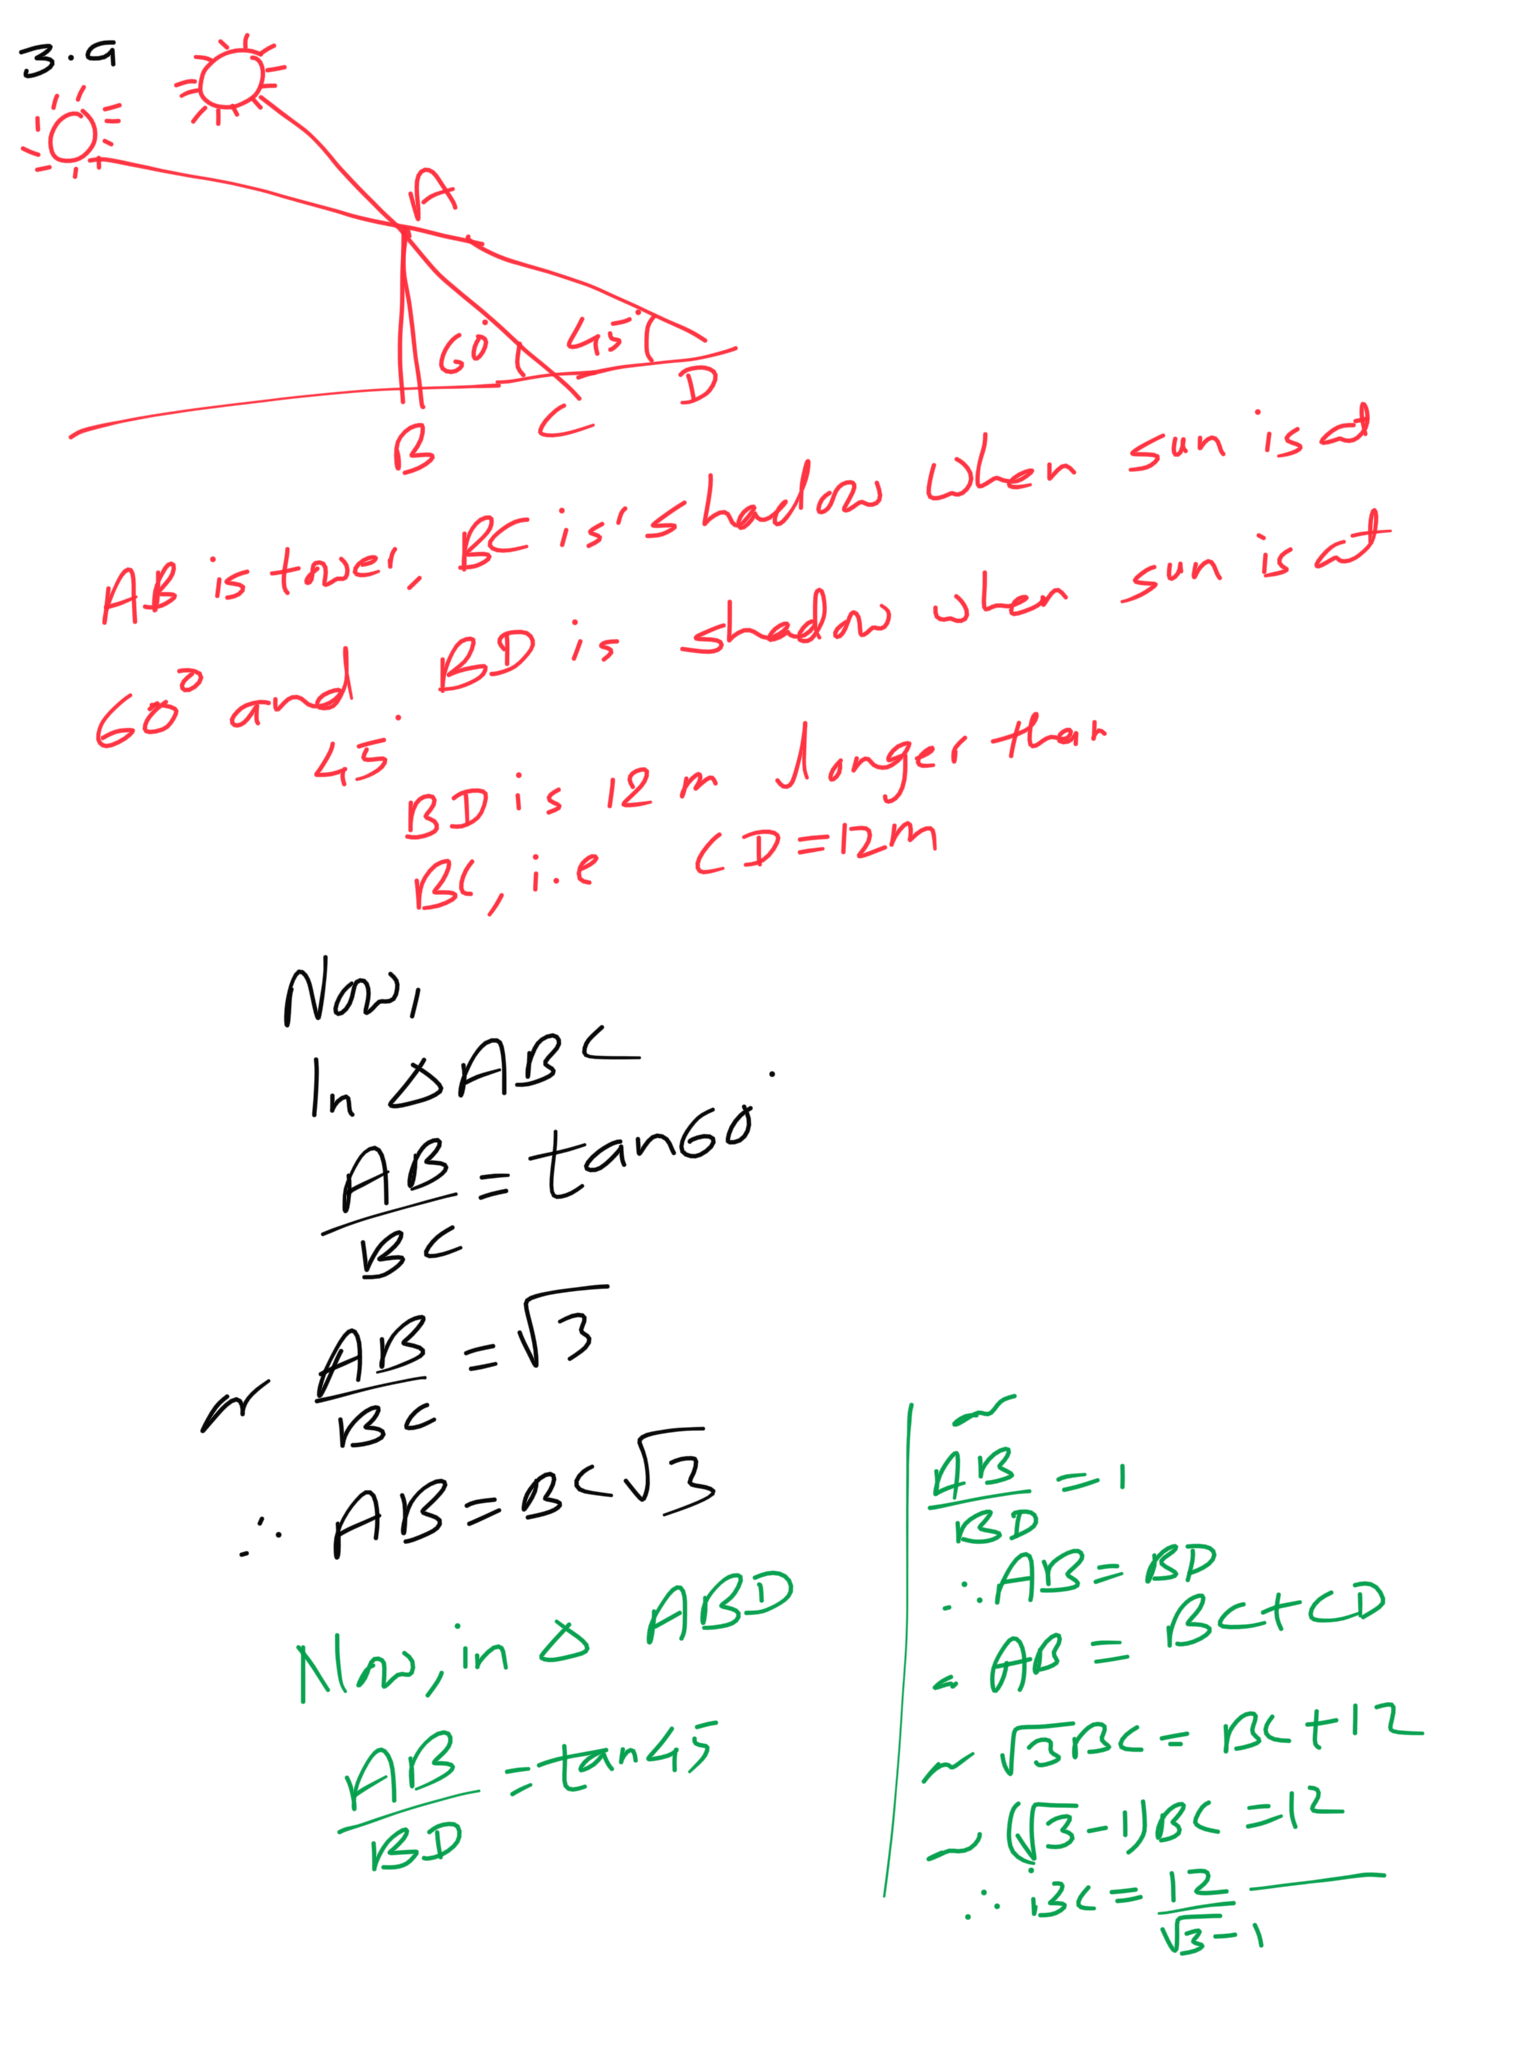 3.9
A
60°
45°
B
C
D
AB is tower, BC is shadow when sun is at
60° and BD is shadow when sun is at
45°
BD is 12 m longer than
BC, i.e CD=12m
Now,
In ΔABC
AB/BC = tan60°
~ AB/BC = √3
∴ AB = BC√3
Now, in Δ ABD
AB/BD = tan45
~
AB/BD = 1
∴ AB = BD
~ AB = BC+CD
~ √3BC = BC+12
~ (√3-1)BC = 12
∴ BC = 12/√3-1